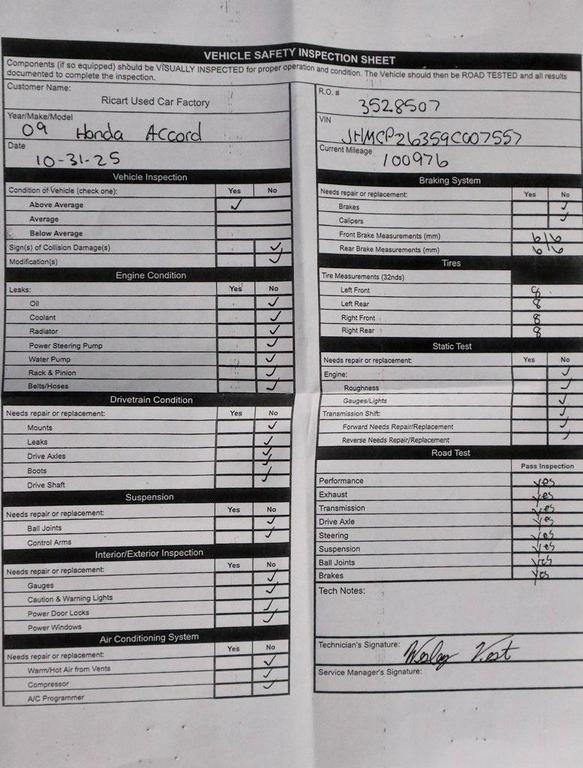 VEHICLE SAFETY INSPECTION SHEET
Components (if so equipped) should be VISUALLY INSPECTED for proper operation and condition. The Vehicle should then be ROAD TESTED and all results
documented to complete the inspection.
Customer Name:
Ricart Used Car Factory
Year/Make/Model
09 Honda Accord
Date
10-31-25
Vehicle Inspection
Condition of Vehicle (check one): Yes No
Above Average ✓
Average
Below Average
Sign(s) of Collision Damage(s) ✓
Modification(s) ✓
Engine Condition
Leaks: Yes No
Oil ✓
Coolant ✓
Radiator ✓
Power Steering Pump ✓
Water Pump ✓
Rack & Pinion ✓
Belts/Hoses ✓
Drivetrain Condition
Needs repair or replacement: Yes No
Mounts ✓
Leaks ✓
Drive Axles ✓
Boots ✓
Drive Shaft ✓
Suspension
Needs repair or replacement: Yes No
Ball Joints ✓
Control Arms ✓
Interior/Exterior Inspection
Needs repair or replacement: Yes No
Gauges ✓
Caution & Warning Lights ✓
Power Door Locks ✓
Power Windows ✓
Air Conditioning System
Needs repair or replacement: Yes No
Warm/Hot Air from Vents ✓
Compressor ✓
A/C Programmer ✓
R.O. #
3528507
VIN
JHMCP26359C007557
Current Mileage
100976
Braking System
Needs repair or replacement: Yes No
Brakes ✓
Calipers ✓
Front Brake Measurements (mm) 6/6
Rear Brake Measurements (mm) 6/6
Tires
Tire Measurements (32nds)
Left Front 8
Left Rear 8
Right Front 8
Right Rear 8
Static Test
Needs repair or replacement: Yes No
Engine: ✓
Roughness ✓
Gauges/Lights ✓
Transmission Shift: ✓
Forward Needs Repair/Replacement ✓
Reverse Needs Repair/Replacement
Road Test
Pass Inspection
Performance Yes
Exhaust Yes
Transmission Yes
Drive Axle Yes
Steering Yes
Suspension Yes
Ball Joints Yes
Brakes Yes
Tech Notes:
Technician's Signature: Wesley Vest
Service Manager's Signature: